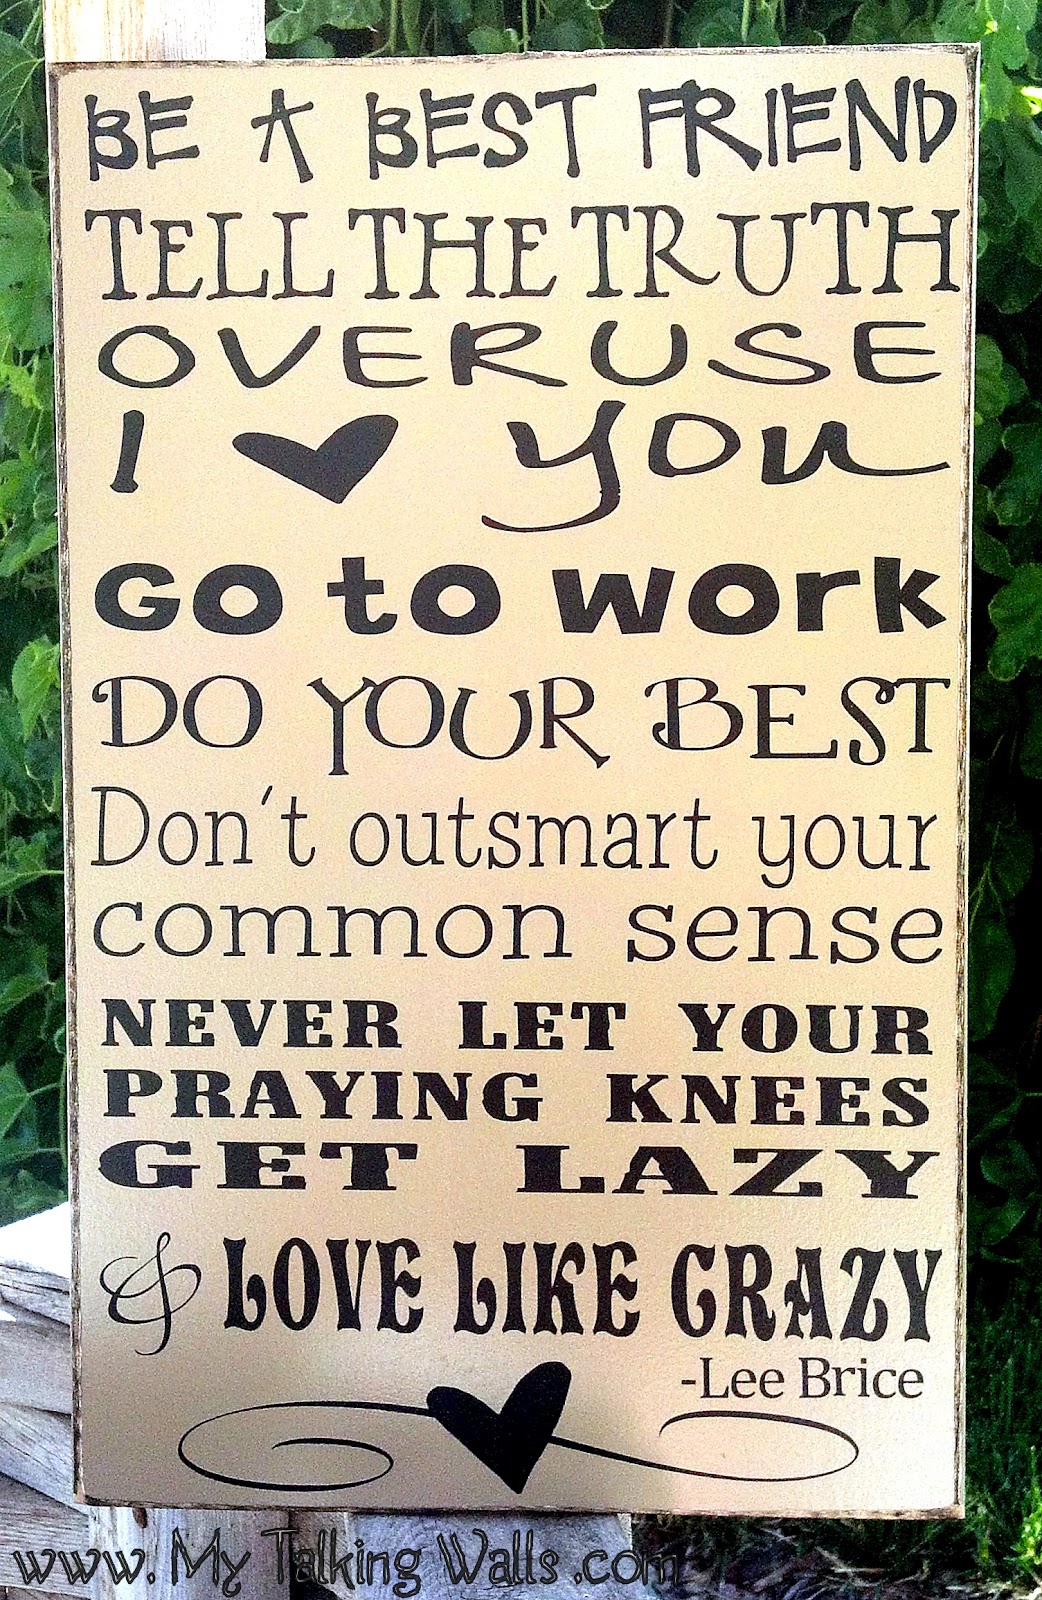 BE A BEST FRIEND
TELL THE TRUTH
OVERUSE
I ♥ you
GO to WORK
DO YOUR BEST
Don't outsmart your
common sense
NEVER LET YOUR
PRAYING KNEES
GET LAZY
& LOVE LIKE CRAZY
-Lee Brice
www.MyTalkingWalls.com